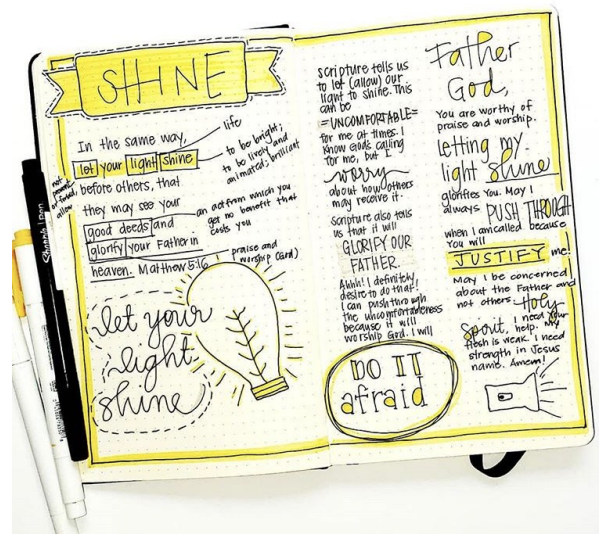 SHINE
In the same way,
life
let your light shine
to be bright;
to be lively and
animated; brilliant
not
prevent
or forbid;
allow
before others, that
they may see your
good deeds and
an act from which you
get no benefit that
costs you
glorify your Father in
praise and
worship (God)
heaven. Matthew 5:16
let your
light
shine
scripture tells us
to let (allow) our
light to shine. This
can be
=UNCOMFORTABLE=
for me at times. I
know God's calling
for me, but I
worry
about how others
may receive it.
Scripture also tells
us that it will
GLORIFY OUR
FATHER.
Ahhh! I definitely
desire to do that!
I can push through
the uncomfortableness
because it will
worship God. I will
DO IT
afraid
Father
God,
You are worthy of
praise and worship.
letting my
light shine
glorifies You. May I
always PUSH THROUGH
when I am called because
You will
JUSTIFY me!
May I be concerned
about the Father and
not others. Holy
Spirit, I need your
help. My
flesh is weak. I need
strength in Jesus
name. Amen!